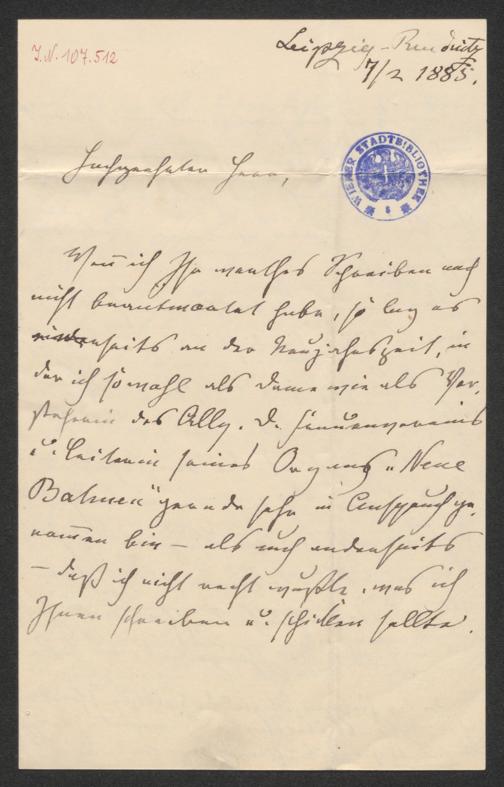 J.N. 107.512
Leipzig-Reudnitz
7/2 1885.
WIENER STADTBIBLIOTHEK
Hochgeehrter Herr,
Wenn ich Ihr werthes Schreiben noch
nicht beantwortet habe, so lag es
einerseits an der Neujahrszeit, in
der ich sowohl als Dame wie als Vor-
steherin des Allg. D. Frauenvereins
u. Leiterin seines Organs „Neue
Bahnen" gerade sehr in Anspruch ge-
nommen bin – als auch anderseits
– daß ich nicht recht wußte, was ich
Ihnen schreiben u. schicken sollte.